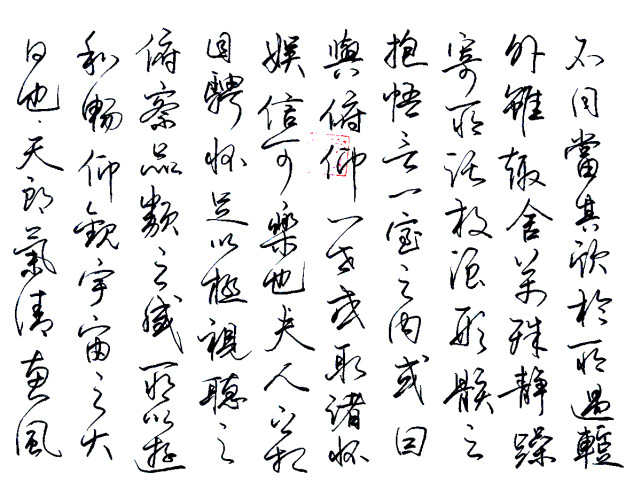 日也天朗氣清惠風
和暢仰觀宇宙之大
俯察品類之盛所以遊
目騁懷足以極視聽之
娛信可樂也夫人之相
與俯仰一世或取諸懷
抱悟言一室之內或因
寄所託放浪形骸之
外雖趣舍萬殊靜躁
不同當其欣於所遇輕